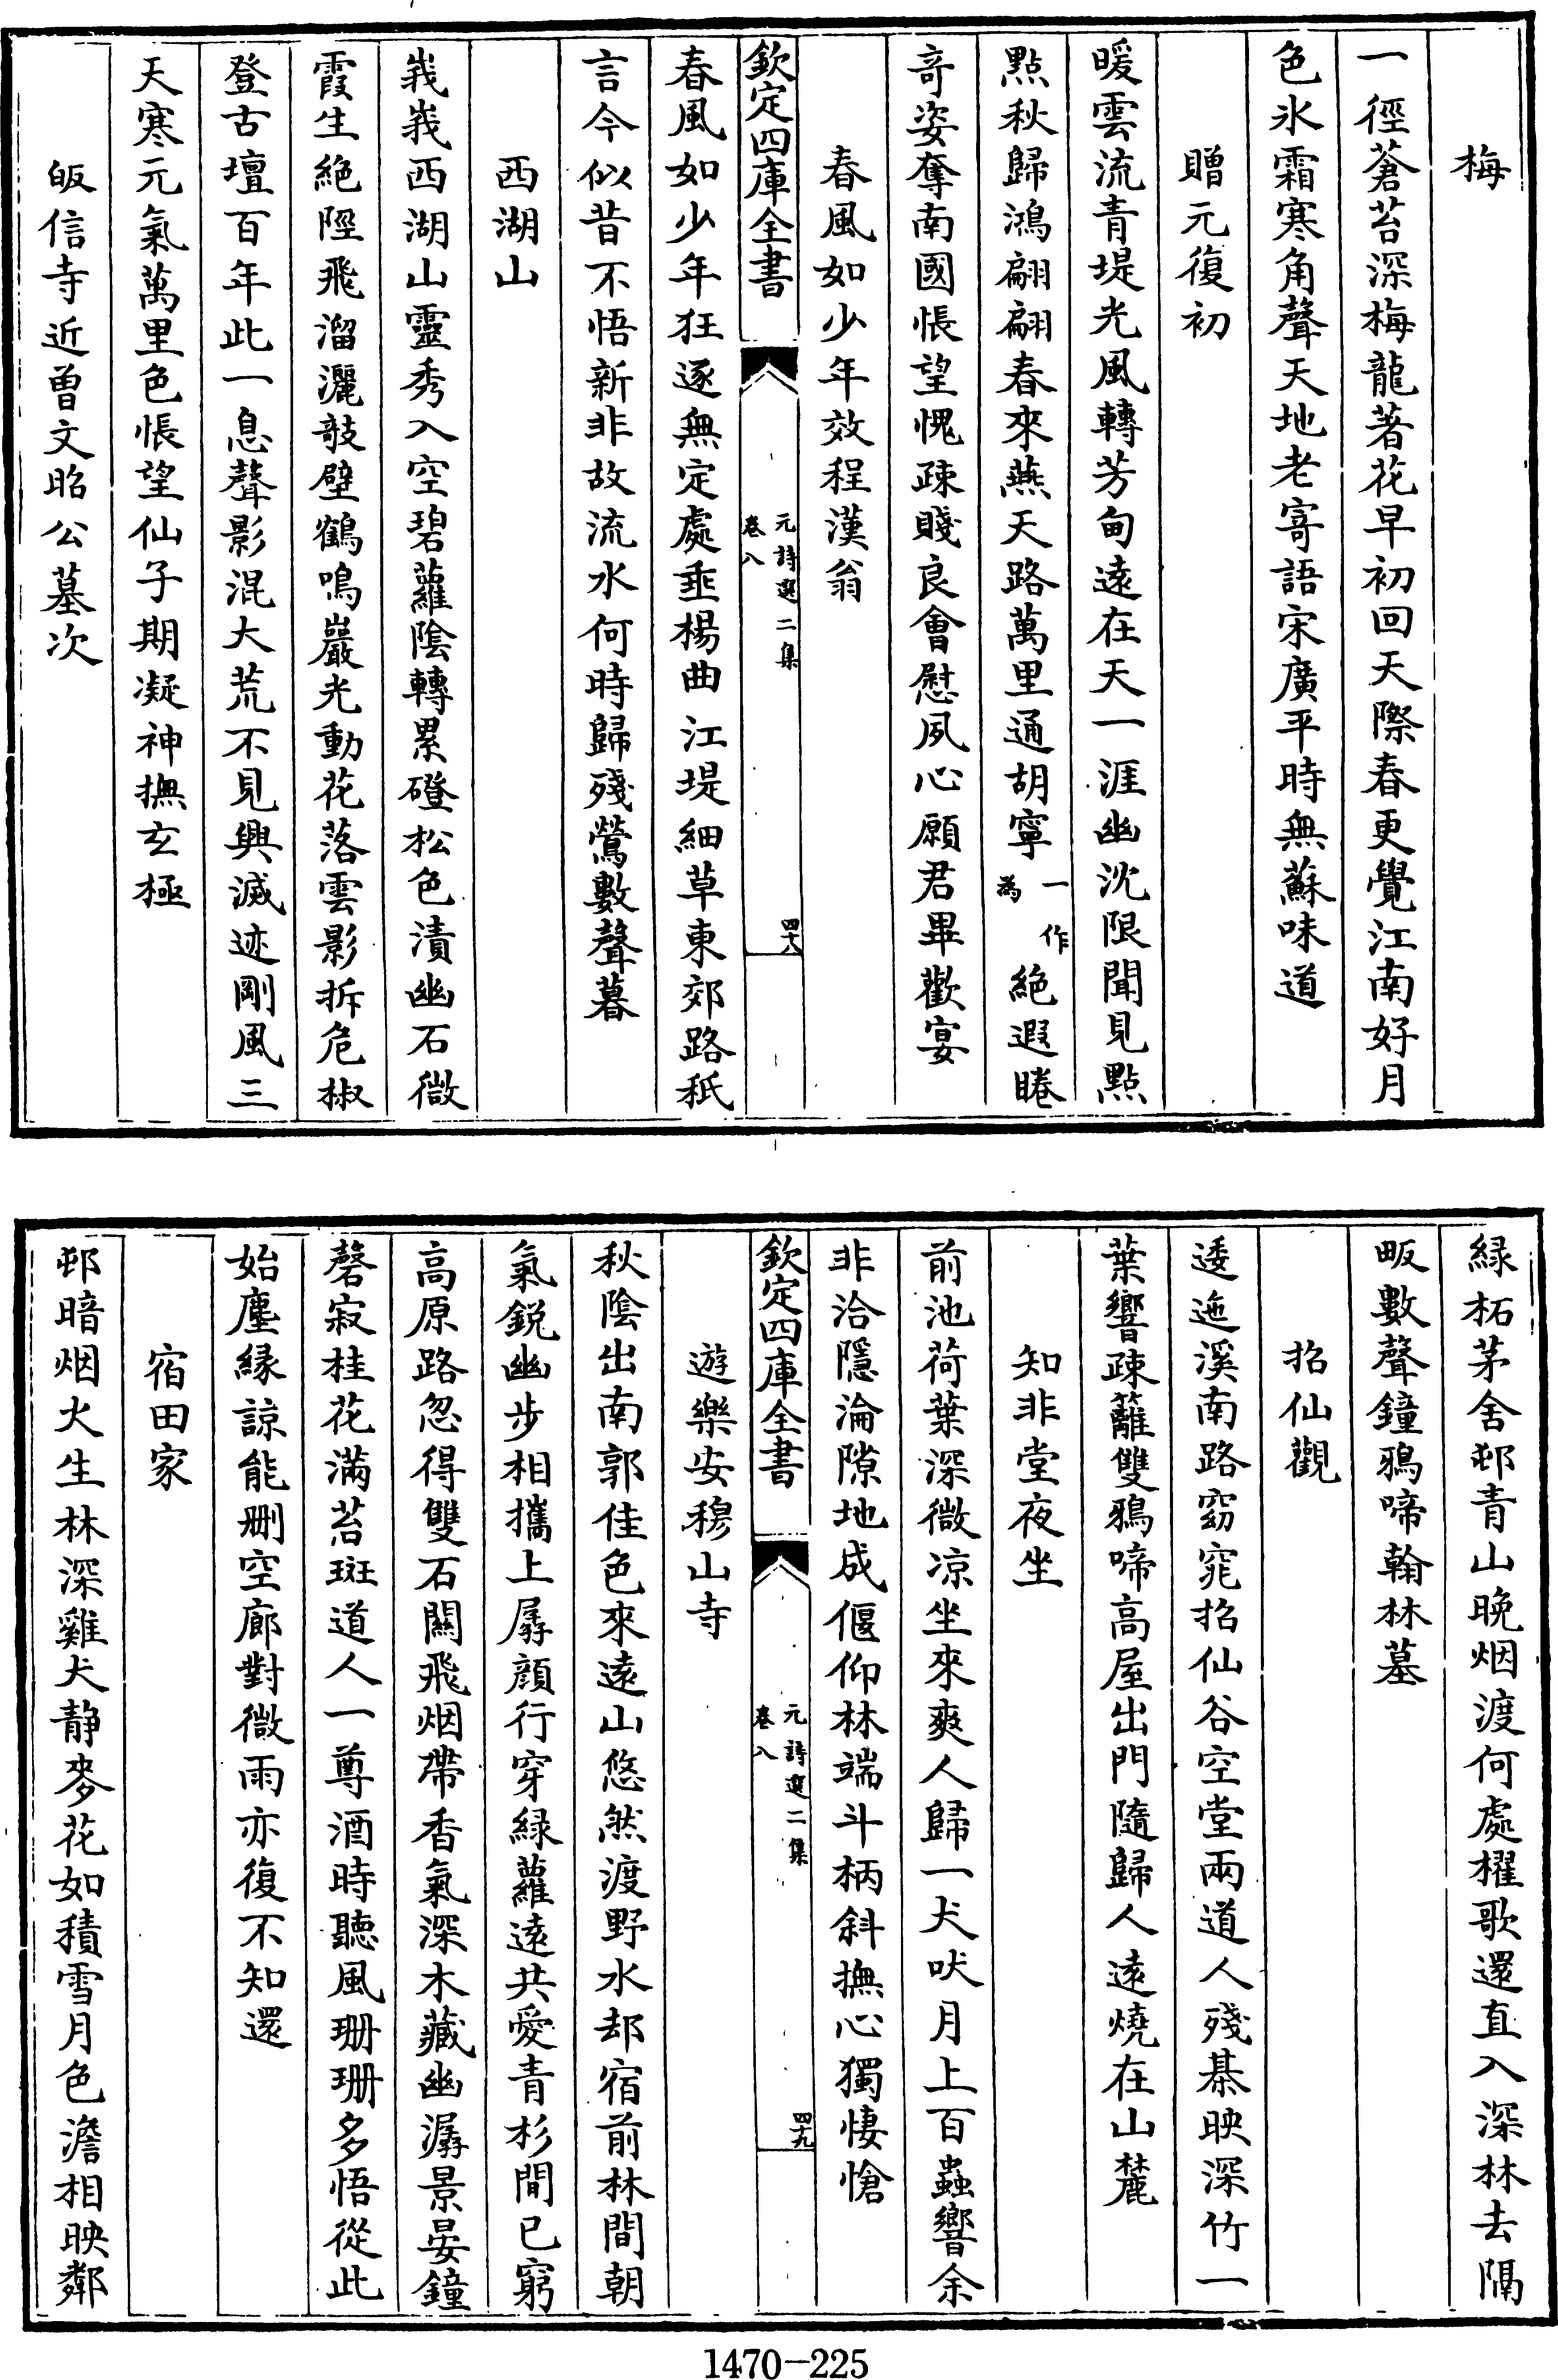 梅
一徑蒼苔深梅龍著花早初回天際春更覺江南好月
色氷霜寒角聲天地老寄語宋廣平時無蘇味道
贈元復初
暖雲流青堤光風轉芳甸遠在天一涯幽沈限聞見點
點秋歸鴻翩翩春來燕天路萬里通胡寧一作為絕遐睠
奇姿奪南國悵望愧疎賤良會慰夙心願君畢歡宴
春風如少年效程漢翁
欽定四庫全書
元詩選二集
卷八
四十八
春風如少年狂逐無定處垂楊曲江堤細草東郊路秖
言今似昔不悟新非故流水何時歸殘鶯數聲暮
西湖山
峩峩西湖山靈秀入空碧蘿陰轉累磴松色漬幽石微
霞生絶陘飛溜灑攲壁鶴鳴巖光動花落雲影拆危椒
登古壇百年此一息聲影混大荒不見興滅迹剛風三
天寒元氣萬里色悵望仙子期凝神撫玄極
皈信寺近曾文昭公墓次
緑柘茅舍邨青山晚烟渡何處櫂歌還直入深林去隔
畈數聲鐘鴉啼翰林墓
招仙觀
逶迤溪南路窈窕招仙谷空堂兩道人殘棊映深竹一
葉響疎籬雙鴉啼高屋出門隨歸人遠燒在山麓
知非堂夜坐
前池荷葉深微凉坐來爽人歸一犬吠月上百蟲響余
非洽隱淪隙地成偃仰林端斗柄斜撫心獨悽愴
欽定四庫全書
元詩選二集
卷八
四十九
遊樂安穆山寺
秋陰出南郭佳色來遠山悠然渡野水却宿前林間朝
氣鋭幽步相攜上孱顔行穿緑蘿遠共愛青杉間已窮
高原路忽得雙石闗飛烟帶香氣深木藏幽潺景晏鐘
磬寂桂花滿苔斑道人一尊酒時聽風珊珊多悟從此
始塵縁諒能刪空廊對微雨亦復不知還
宿田家
邨暗烟火生林深雞犬静麥花如積雪月色澹相映鄰
1470-225